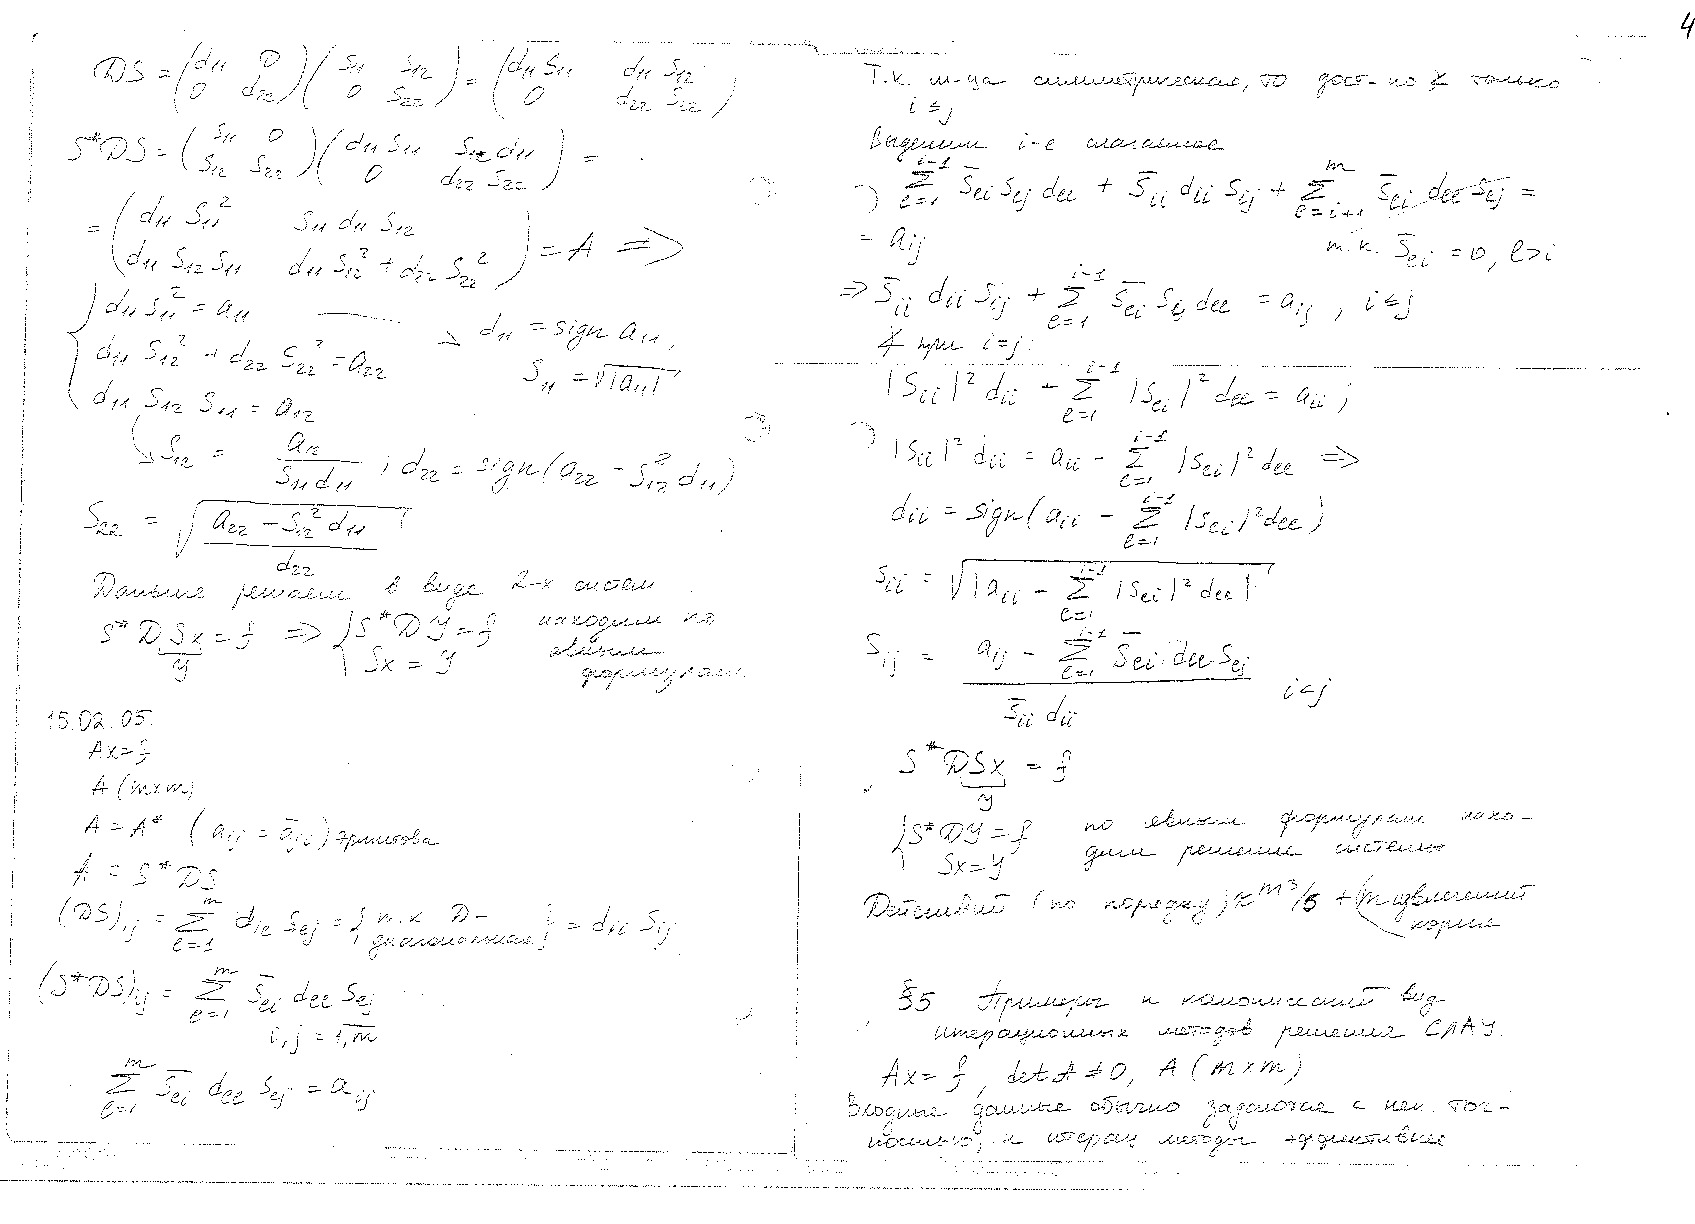 4
DS = (d₁₁ 0 / 0 d₂₂) (s₁₁ s₁₂ / 0 s₂₂) = (d₁₁ s₁₁ d₁₁ s₁₂ / 0 d₂₂ s₂₂)
S*DS = (s₁₁ 0 / s₁₂ s₂₂) (d₁₁ s₁₁ s₁₂ d₁₁ / 0 d₂₂ s₂₂) =
= (d₁₁ s₁₁² s₁₁ d₁₁ s₁₂ / d₁₁ s₁₂ s₁₁ d₁₁ s₁₂² + d₂₂ s₂₂²) = A ⇒
{ d₁₁ s₁₁² = a₁₁ → d₁₁ = sign a₁₁,
d₁₁ s₁₂² + d₂₂ s₂₂² = a₂₂ s₁₁ = √|a₁₁|
d₁₁ s₁₂ s₁₁ = a₁₂
↘ s₁₂ = a₁₂ / (s₁₁ d₁₁) ; d₂₂ = sign(a₂₂ − s₁₂² d₁₁)
s₂₂ = √((a₂₂ − s₁₂² d₁₁) / d₂₂)
Дальше решаем в виде 2-х систем
S*DSx = f ⇒ { S*Dy = f находим по
y Sx = y явным
формулам
15.02.05.
Ax = f
A (m×m)
A = A* (aᵢⱼ = āⱼᵢ) эрмитова
A = S*DS
(DS)ᵢⱼ = Σₗ₌₁ᵐ dᵢₗ sₗⱼ = {т.к D- диагональная} = dᵢᵢ sᵢⱼ
(S*DS)ᵢⱼ = Σₗ₌₁ᵐ s̄ₗᵢ dₗₗ sₗⱼ
i, j = 1,m
Σₗ₌₁ᵐ s̄ₗᵢ dₗₗ sₗⱼ = aᵢⱼ
Т.к. м-ца симметрическая, то дост-но ∡ только
i ≤ j
Выделим i-е слагаемое
Σₗ₌₁ⁱ⁻¹ s̄ₗᵢ sₗⱼ dₗₗ + s̄ᵢᵢ dᵢᵢ sᵢⱼ + Σₗ₌ᵢ₊₁ᵐ s̄ₗᵢ dₗₗ sₗⱼ =
= aᵢⱼ т.к. s̄ₗᵢ = 0, l>i
⇒ s̄ᵢᵢ dᵢᵢ sᵢⱼ + Σₗ₌₁ⁱ⁻¹ s̄ₗᵢ sₗⱼ dₗₗ = aᵢⱼ , i ≤ j
∡ при i=j:
|sᵢᵢ|² dᵢᵢ + Σₗ₌₁ⁱ⁻¹ |sₗᵢ|² dₗₗ = aᵢᵢ ;
|sᵢᵢ|² dᵢᵢ = aᵢᵢ − Σₗ₌₁ⁱ⁻¹ |sₗᵢ|² dₗₗ ⇒
dᵢᵢ = sign(aᵢᵢ − Σₗ₌₁ⁱ⁻¹ |sₗᵢ|² dₗₗ)
sᵢᵢ = √|aᵢᵢ − Σₗ₌₁ⁱ⁻¹ |sₗᵢ|² dₗₗ|
sᵢⱼ = (aᵢⱼ − Σₗ₌₁ⁱ⁻¹ s̄ₗᵢ dₗₗ sₗⱼ) / (s̄ᵢᵢ dᵢᵢ) i<j
S*DSx = f
y
{ S*Dy = f по явным формулам нахо-
Sx = y дим решение системы
Действий (по порядку) m³/6 + (m извлечений
корня
§5 Примеры и канонический вид
итерационных методов решения СЛАУ.
Ax = f, det A ≠ 0, A (m×m)
Входные данные обычно задаются с нек. точ-
ностью, и итерац методы эффективнее